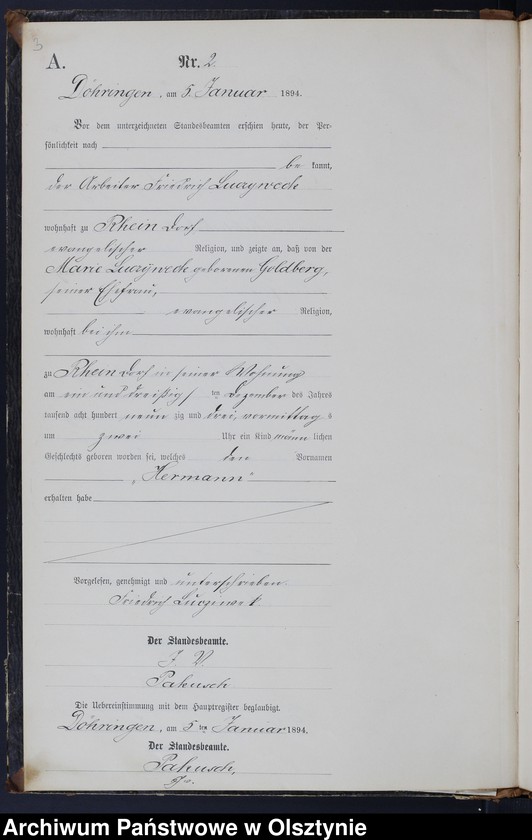 3
A. Nr. 2.
Döhringen, am 5. Januar 1894.
Vor dem unterzeichneten Standesbeamten erschien heute, der Per-
sönlichkeit nach
be kannt,
der Arbeiter Friedrich
wohnhaft zu Rhein Dorf
evangelischer Religion, und zeigte an, daß von der
Marie geborenen Goldberg,
seiner Ehefrau,
evangelischer Religion,
wohnhaft bei ihm
zu Rhein Dorf in seiner Wohnung
am ein und dreißigs ten Dezember des Jahres
tausend acht hundert neun zig und drei, vormittag s
um zwei Uhr ein Kind männ lichen
Geschlechts geboren worden sei, welches den Vornamen
„Hermann"
erhalten habe
Vorgelesen, genehmigt und unterschrieben
Friedrich
Der Standesbeamte.
J. V.
Pakusch
Die Uebereinstimmung mit dem Hauptregister beglaubigt.
Döhringen, am 5 ten Januar 1894.
Der Standesbeamte.
Pakusch,
Archiwum Państwowe w Olsztynie